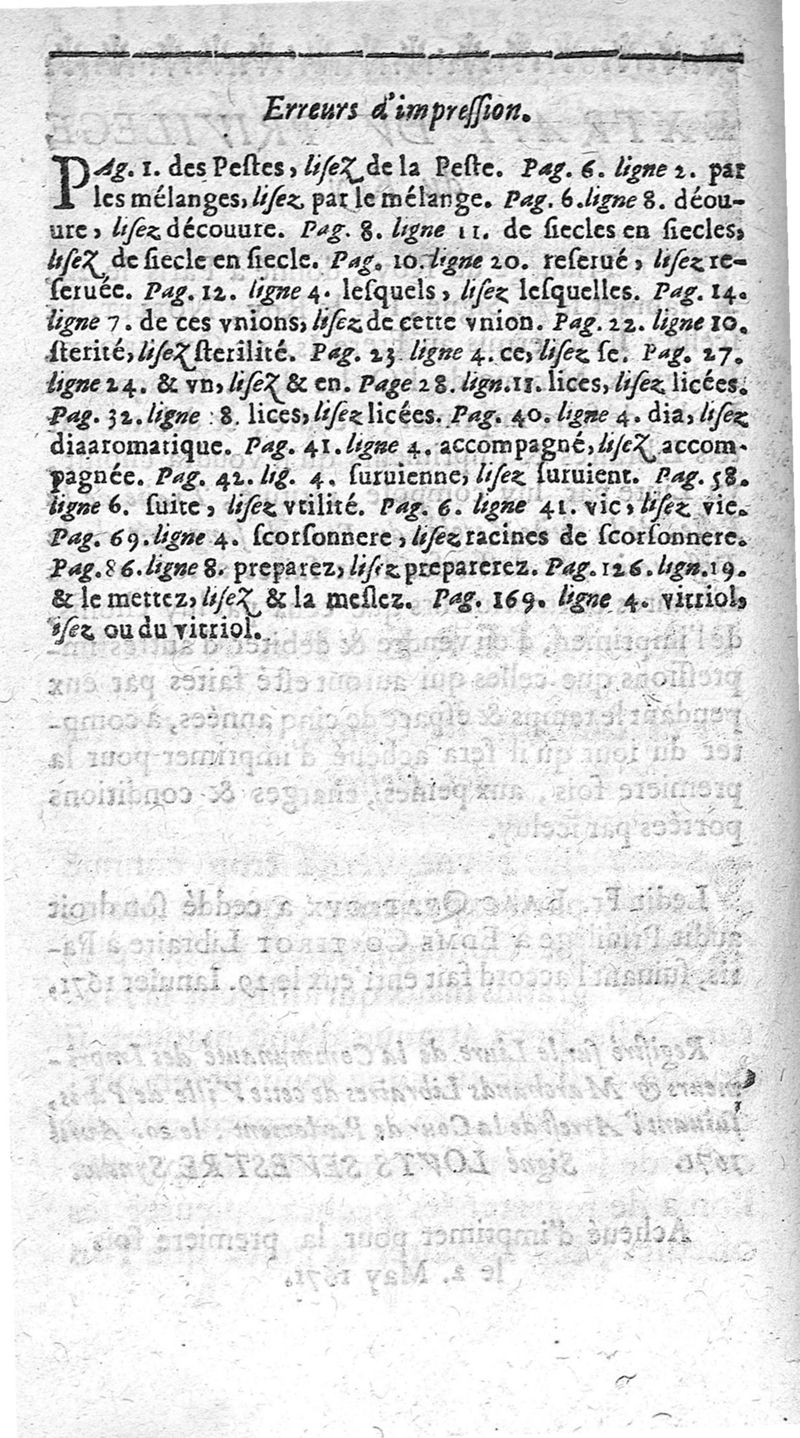 Erreurs d'impreſſion.
PAg. 1. des Peſtes, liſez de la Peſte. Pag. 6. ligne 2. par
les mélanges, liſez par le mélange. Pag. 6. ligne 8. déou-
ure, liſez découure. Pag. 8. ligne 11. de ſiecles en ſiecles,
liſez de ſiecle en ſiecle. Pag. 10. ligne 20. reſerué, liſez re-
ſeruée. Pag. 12. ligne 4. leſquels, liſez leſquelles. Pag. 14.
ligne 7. de ces vnions, liſez de cette vnion. Pag. 22. ligne 10.
ſterité, liſez ſterilité. Pag. 23 ligne 4. ce, liſez ſe. Pag. 27.
ligne 24. & vn, liſez & en. Page 28. lign. 11. lices, liſez licées.
Pag. 32. ligne 8. lices, liſez licées. Pag. 40. ligne 4. dia, liſez
diaaromatique. Pag. 41. ligne 4. accompagné, liſez accom-
pagnée. Pag. 42. lig. 4. ſuruienne, liſez ſuruient. Pag. 58.
ligne 6. ſuite, liſez vtilité. Pag. 6. ligne 41. vic, liſez vie.
Pag. 69. ligne 4. ſcorſonnere, liſez racines de ſcorſonnere.
Pag. 86. ligne 8. preparez, liſez preparerez. Pag. 126. lign. 19.
& le mettez, liſez & la meſlez. Pag. 169. ligne 4. vitriol,
iſez ou du vitriol.